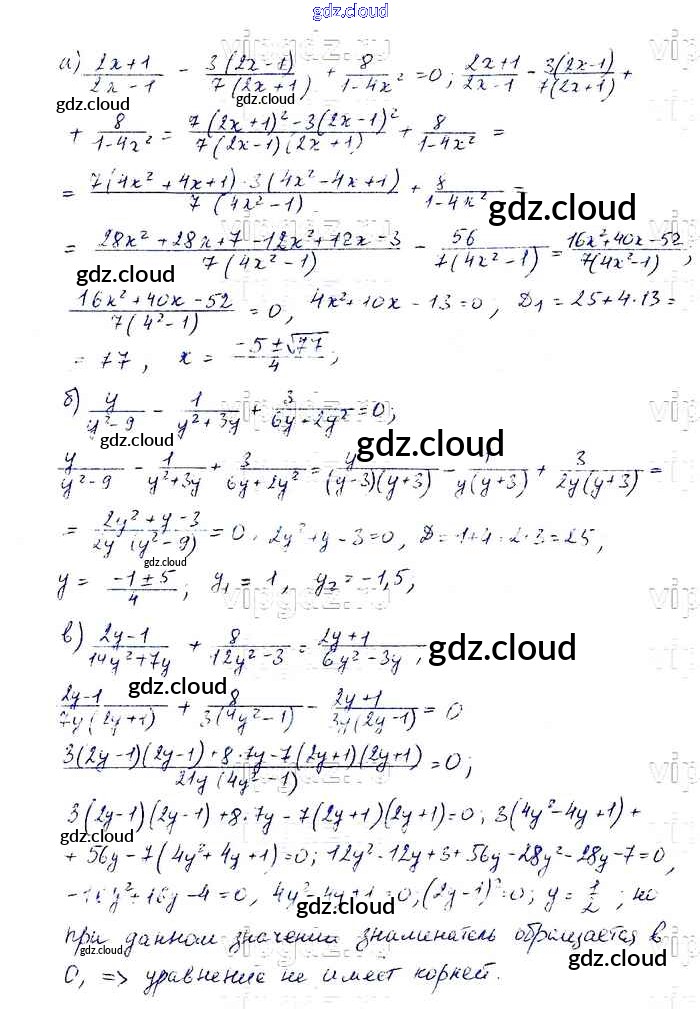 gdz.cloud
а) (2x+1)/(2x-1) - 3(2x-1)/7(2x+1) + 8/(1-4x²) = 0; (2x+1)/(2x-1) - 3(2x-1)/7(2x+1) +
+ 8/(1-4x²) = (7(2x+1)² - 3(2x-1)²)/(7(2x-1)(2x+1)) + 8/(1-4x²) =
= (7(4x²+4x+1)·3(4x²-4x+1))/(7(4x²-1)) + 8/(1-4x²) =
= (28x²+28x+7-12x²+12x-3)/(7(4x²-1)) - 56/(7(4x²-1)) = (16x²+40x-52)/(7(4x²-1));
(16x²+40x-52)/(7(4²-1)) = 0, 4x²+10x-13=0, D₁ = 25+4·13 =
= 77, x = (-5±√77)/4;
б) y/(y²-9) - 1/(y²+3y) + 3/(6y+2y²) = 0;
y/(y²-9) - 1/(y²+3y) + 3/(6y+2y²) = y/((y-3)(y+3)) - 1/(y(y+3)) + 3/(2y(y+3)) =
= (2y²+y-3)/(2y(y²-9)) = 0. 2y²+y-3=0, D=1+4·2·3=25,
y = (-1±5)/4; y₁=1, y₂=-1,5,
в) (2y-1)/(14y²+7y) + 8/(12y²-3) = (2y+1)/(6y²-3y);
(2y-1)/(7y(2y+1)) + 8/(3(4y²-1)) - (2y+1)/(3y(2y-1)) = 0
(3(2y-1)(2y-1)+8·7y-7(2y+1)(2y+1))/(21y(4y²-1)) = 0;
3(2y-1)(2y-1)+8·7y-7(2y+1)(2y+1)=0; 3(4y²-4y+1)+
+56y-7(4y²+4y+1)=0; 12y²-12y+3+56y-28y²-28y-7=0,
-16y²+16y-4=0, 4y²-4y+1=0; (2y-1)²=0; y=1/2; но
при данном значении знаменатель обращается в
0, => уравнение не имеет корней.